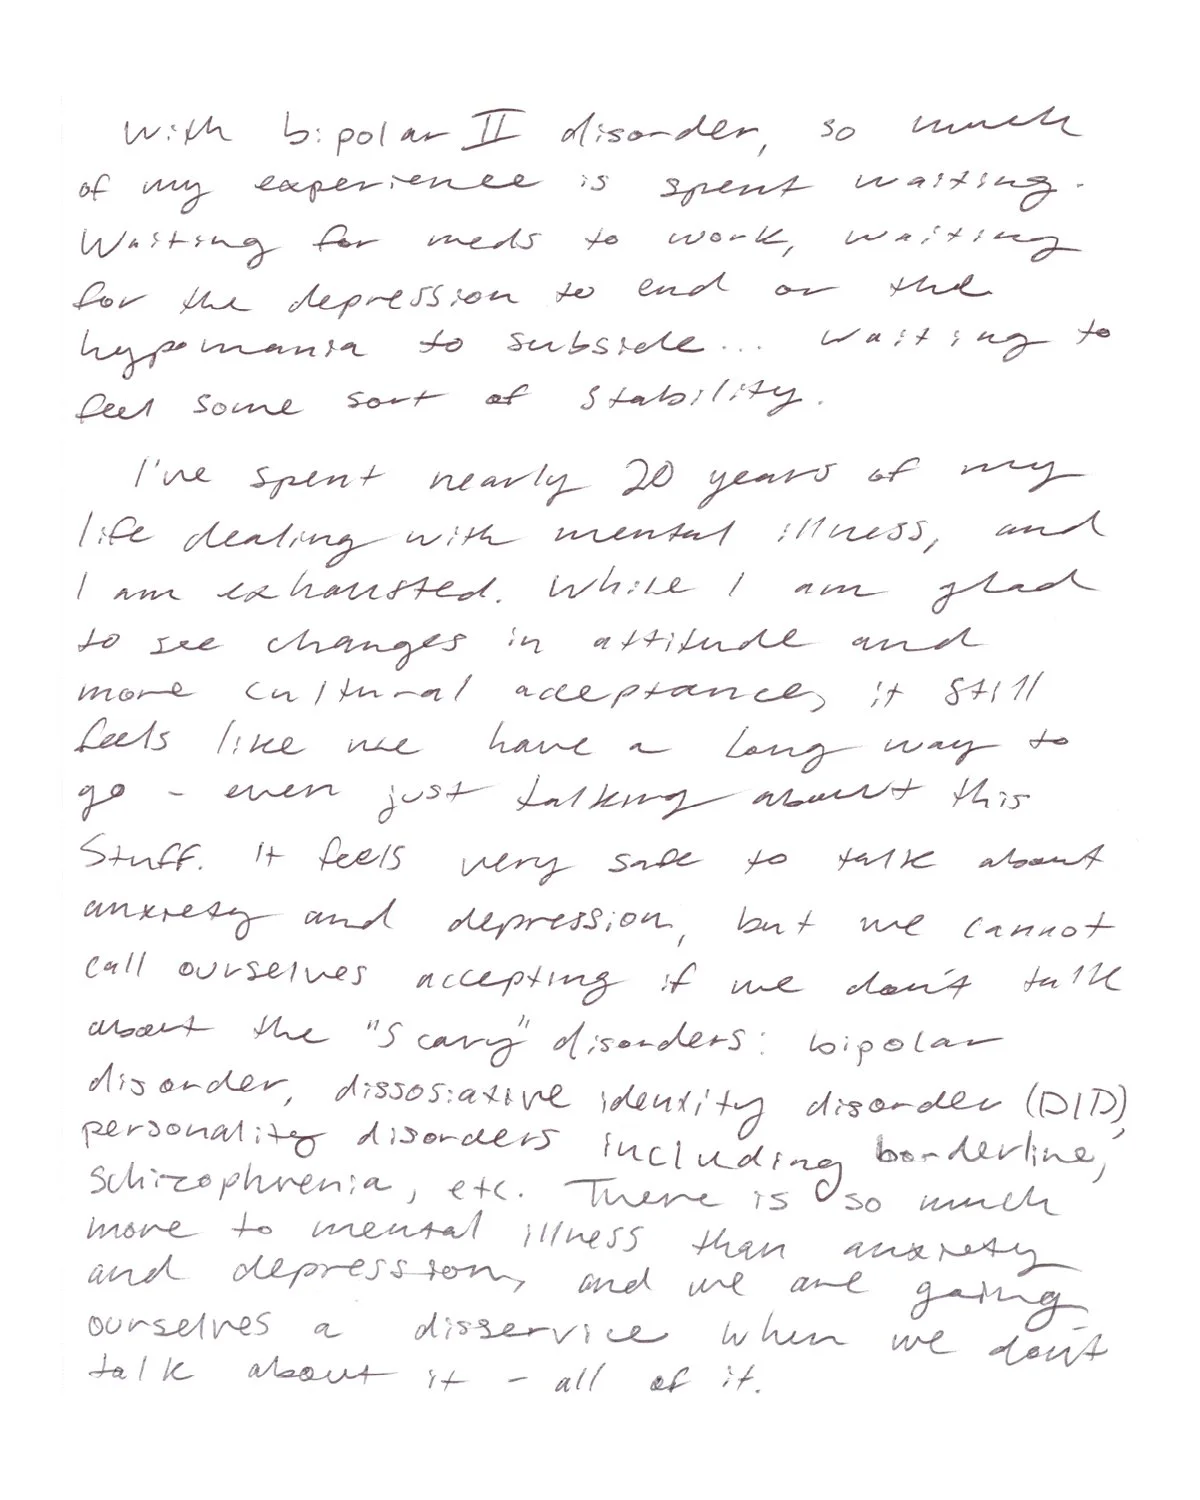 With bipolar II disorder, so much
of my experience is spent waiting.
Waiting for meds to work, waiting
for the depression to end or the
hypomania to subside... waiting to
feel some sort of stability.
I've spent nearly 20 years of my
life dealing with mental illness, and
I am exhausted. While I am glad
to see changes in attitude and
more cultural acceptance, it still
feels like we have a long way to
go - even just talking about this
stuff. It feels very safe to talk about
anxiety and depression, but we cannot
call ourselves accepting if we don't talk
about the "scary" disorders: bipolar
disorder, dissosiative identity disorder (DID),
personality disorders including borderline,
schizophrenia, etc. There is so much
more to mental illness than anxiety
and depression, and we are going
ourselves a disservice when we don't
talk about it - all of it.